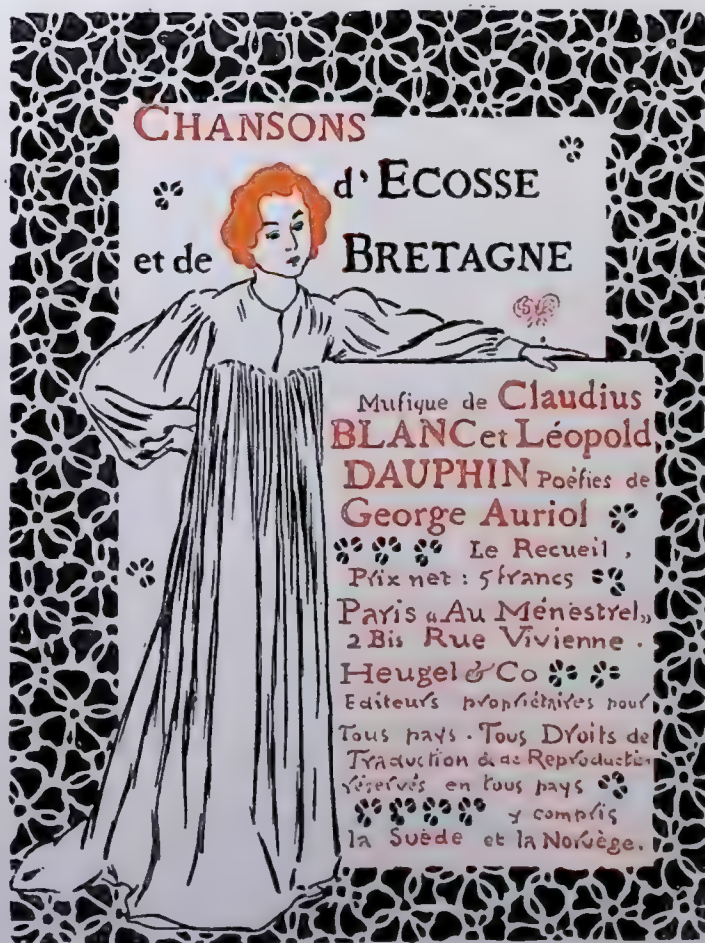 CHANSONS
d'ECOSSE
et de BRETAGNE
Mufique de Claudius
BLANC et Léopold
DAUPHIN Poéfies de
George Auriol
Le Recueil,
Prix net : 5 francs
Paris « Au Ménestrel »
2 Bis Rue Vivienne.
Heugel & Co
Editeurs propriétaires pour
Tous pays. Tous Droits de
Traduction & de Reproduction
réservés en tous pays
y compris
la Suède et la Norvège.